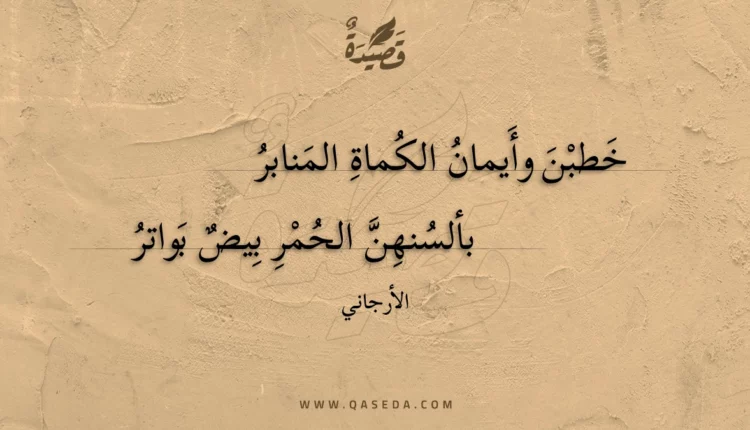 قَصِيْدَةٌ
خَطبْنَ وأَيمانُ الكُماةِ المَنابرُ
بألسُنهِنَّ الحُمْرِ بِيضٌ بَواترُ
الأرجاني
WWW.QASEDA.COM